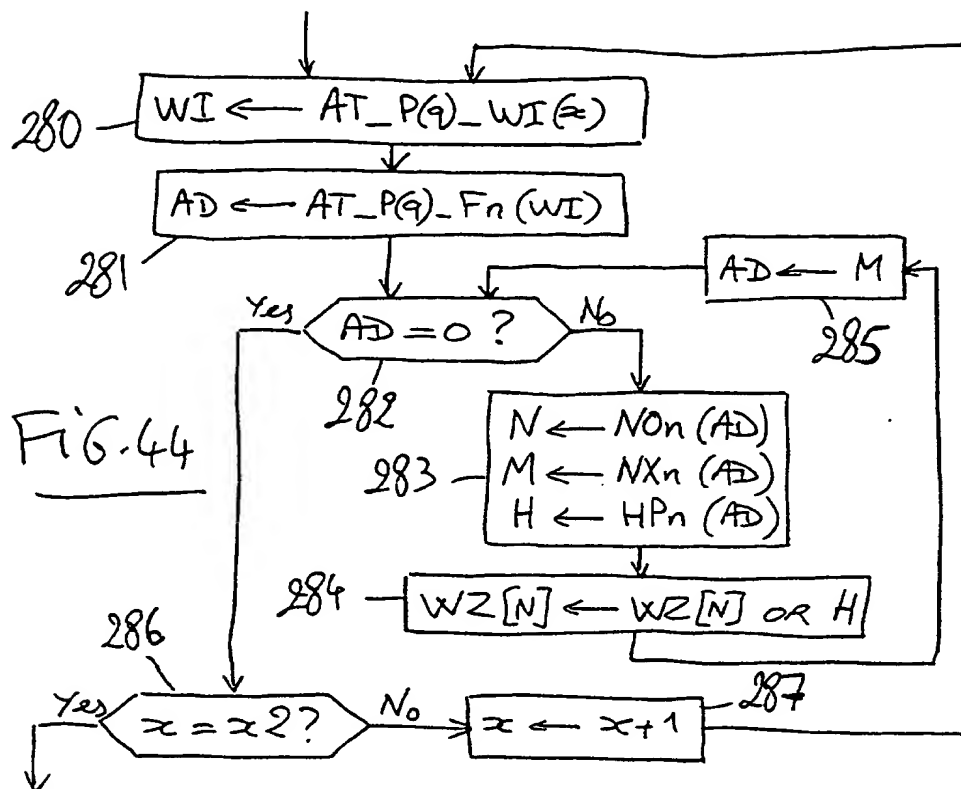 WI ← AT_P(q)_WI(x)
280
AD ← AT_P(q)_Fn(WI)
281
AD ← M
285
Yes
AD = 0 ?
No
282
FiG.44
283
N ← NOn (AD)
M ← NXn (AD)
H ← HPn (AD)
284
WZ[N] ← WZ[N] OR H
286
Yes
x = x2?
No
x ← x+1
287